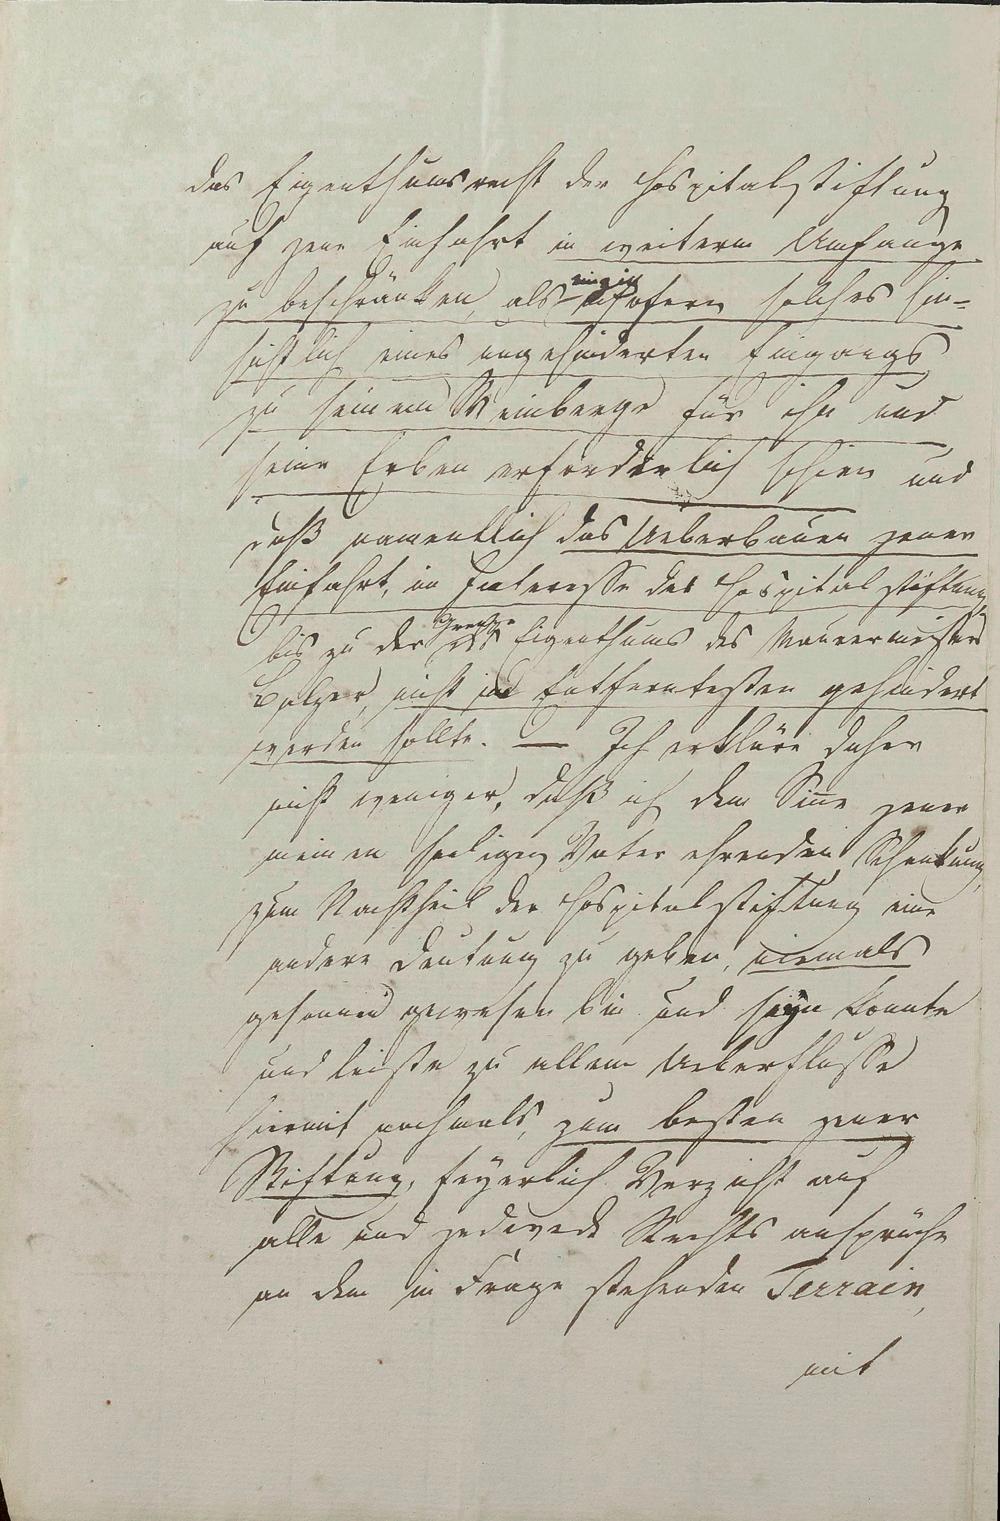 das Eigenthumsrecht der Hospitalstiftung
auf jene Einfahrt in weiterm Umfange
zu beschränken, als einzig insofern solches hin-
sichtlich eines ungehinderten Eingangs
zu seinem Weinberge für ihn und
seine Erben erforderlich schien und
daß namentlich das Ueberbauen jener
Einfahrt, im Interesse der Hospitalstiftung,
bis zu der Grenze des Eigenthums des Maurermeisters
Balzer, nicht im Entferntesten gehindert
werden sollte. — Ich erkläre daher
nicht weniger, daß ich dem Sinne jener
meinen seeligen Vater ehrenden Schenkung,
zum Nachtheil der Hospitalstiftung eine
andere Deutung zu geben, niemals
gesonnen gewesen bin und seyn konnte
und leiste zu allem Ueberflusse
hiermit nochmals, zum besten jener
Stiftung, feyerlich Verzicht auf
alle und jedwede Rechtsansprüche
an dem in Frage stehenden Terrain,
mit